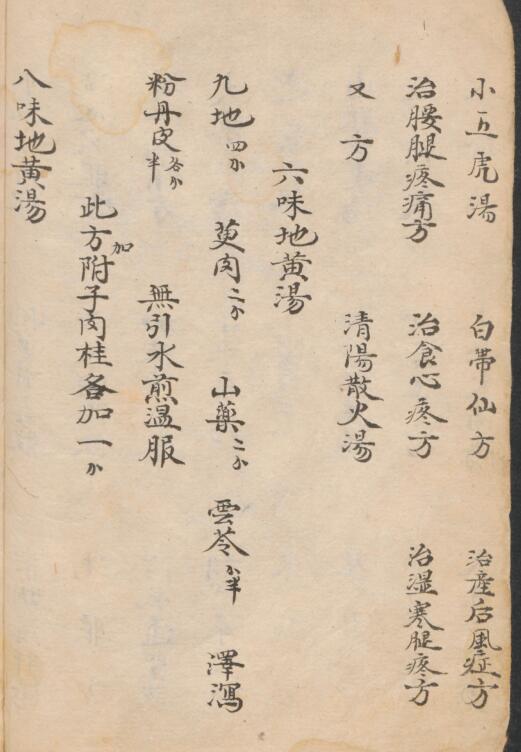 小五虎湯 白帶仙方 治產后風症方
治腰腿疼痛方 治食心疼方 治湿寒腿疼方
又方 清陽散火湯
六味地黄湯
九地四 萸肉二 山藥二 雲苓半 澤瀉
粉丹皮各半 無引水煎温服
此方加附子肉桂各加一
八味地黄湯